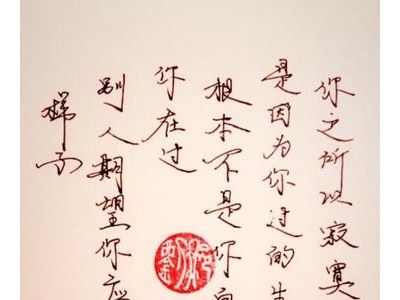 你之所以寂寞
是因为你过的生
根本不是你自
你在过
别人期望你应
样子